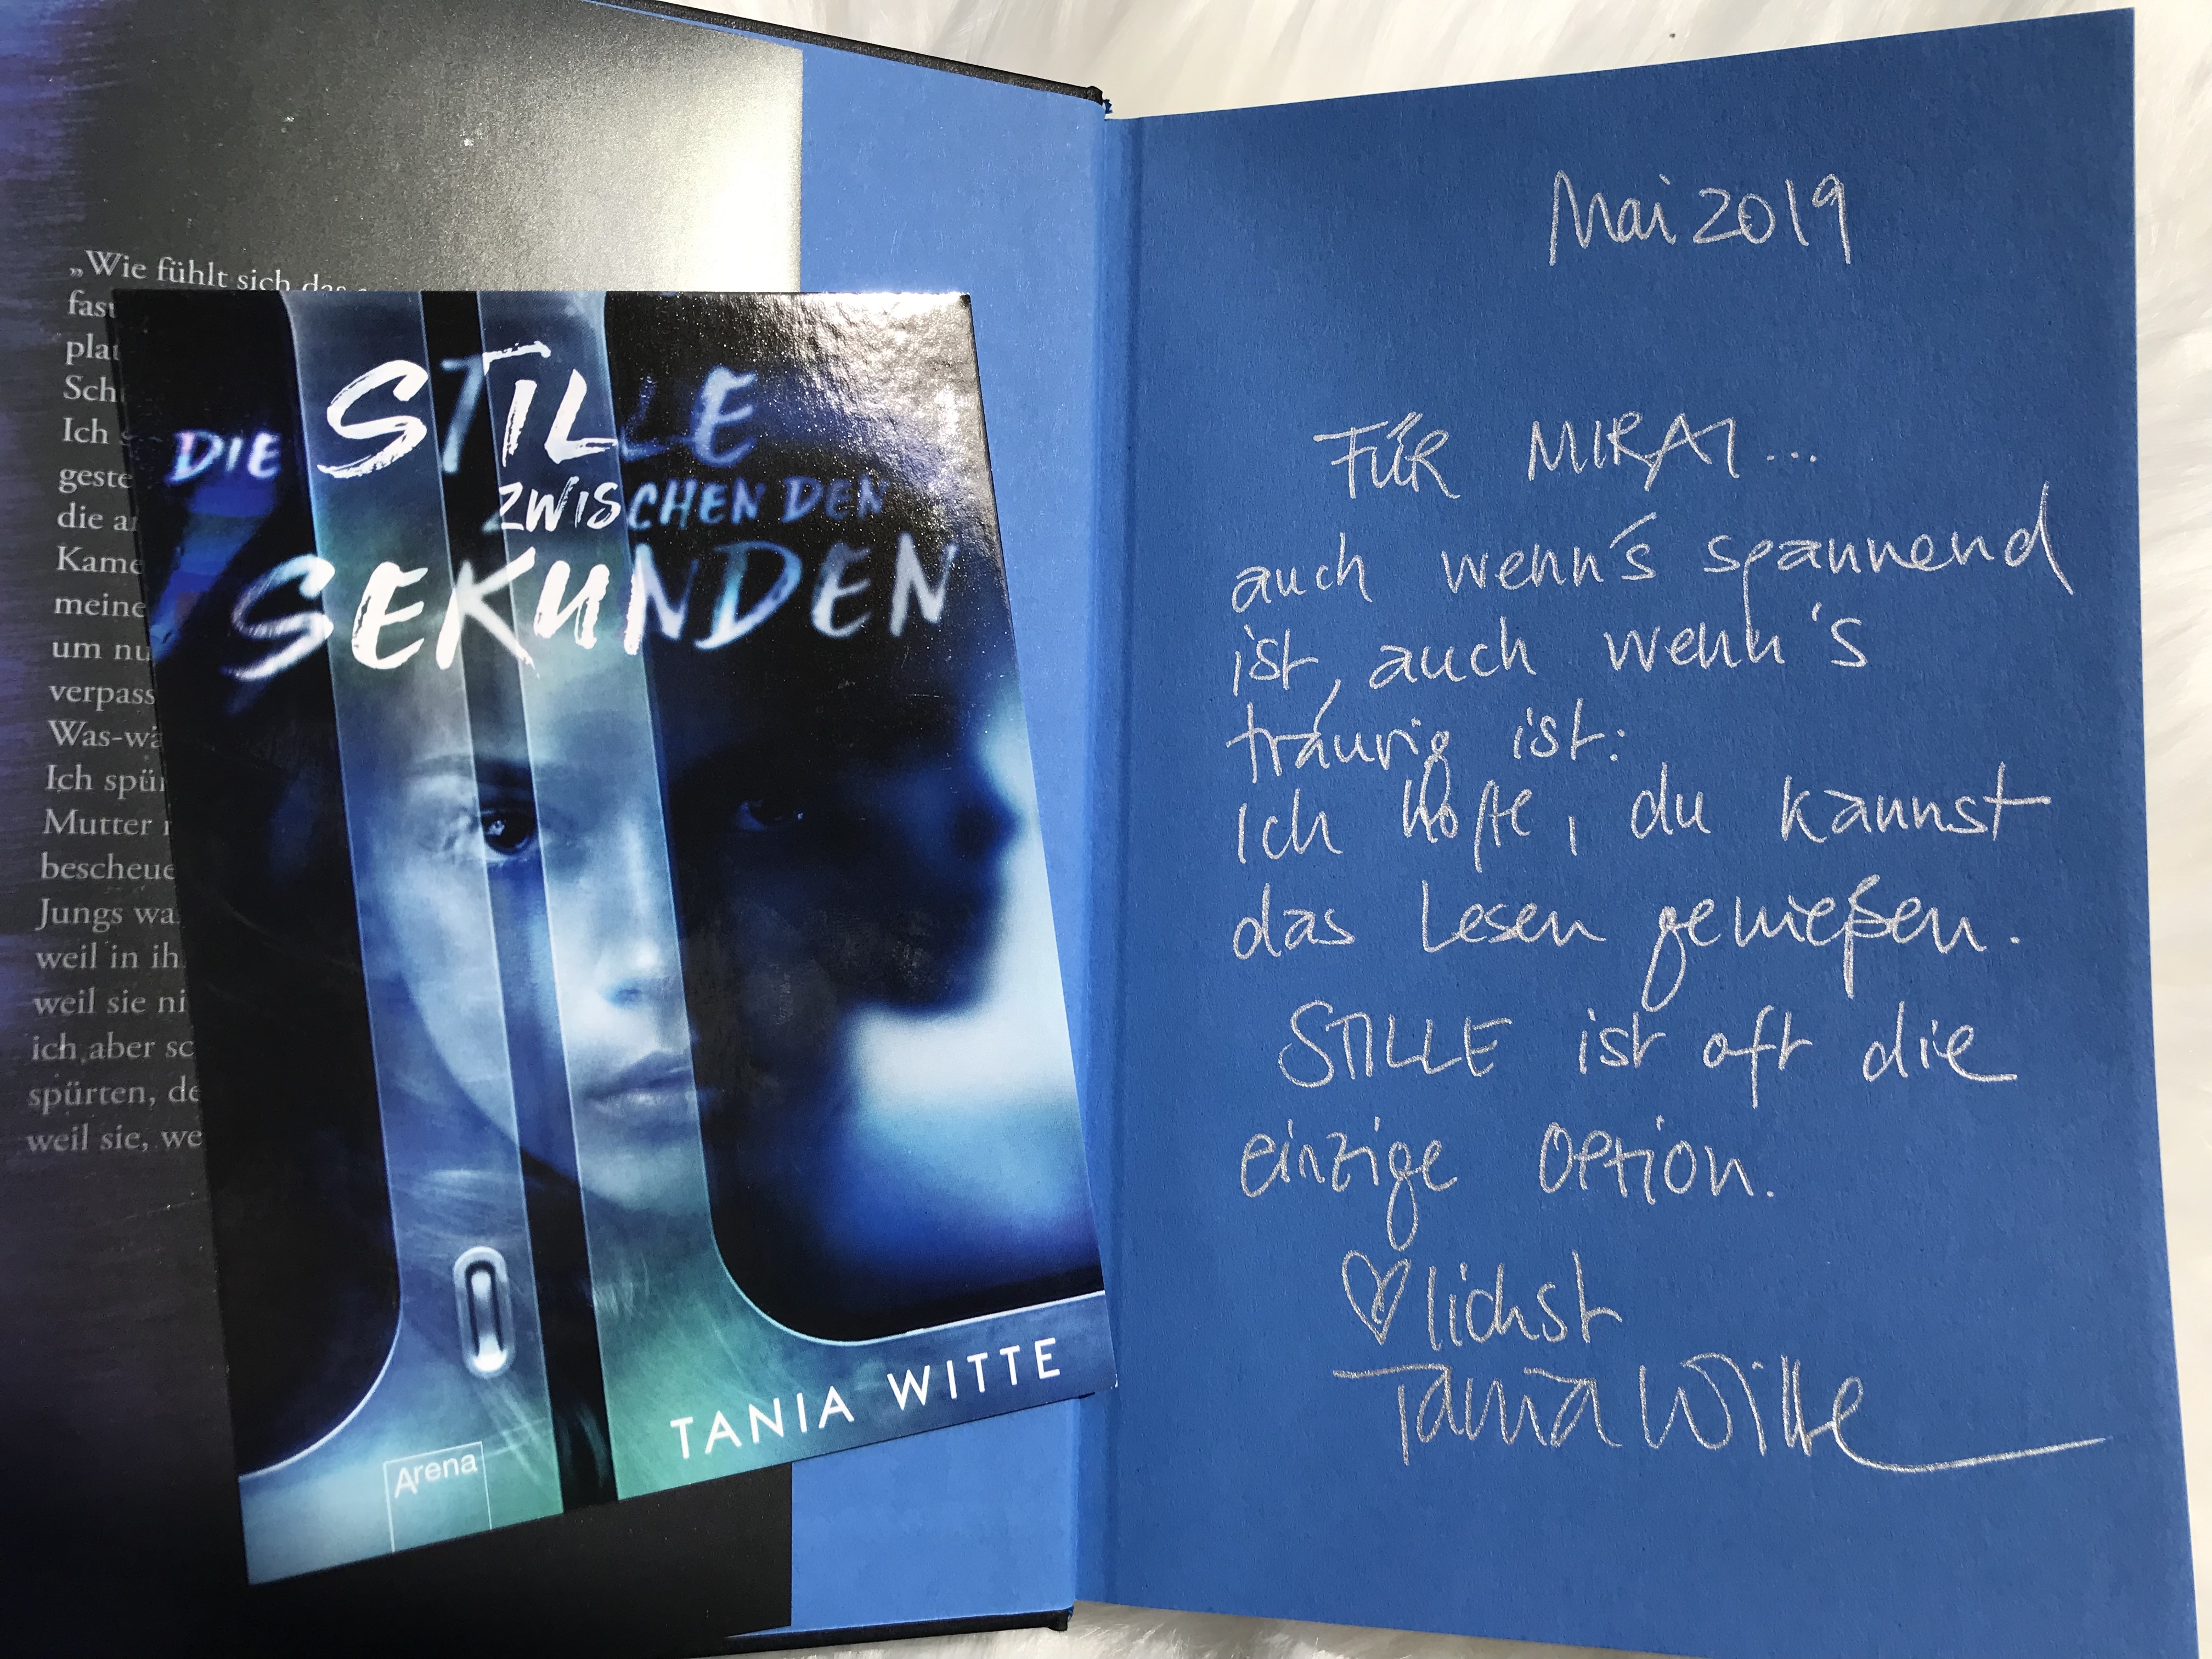 „Wie fühlt sich das
fast
Ich
geste
die
Kame
meine
um nu
verpass
Was-wä
Ich spür
Mutter
bescheue
Jungs wa
weil in ih
weil sie ni
ich aber sc
spürten, de
weil sie, we
DIE STILLE
ZWISCHEN DEN
SEKUNDEN
TANIA WITTE
Arena
Mai 2019
FÜR MIRAI...
auch wenn's spannend
ist, auch wenn's
traurig ist:
Ich hoffe, du kannst
das Lesen genießen.
STILLE ist oft die
einzige Option.
♡lichst
Tania Witte